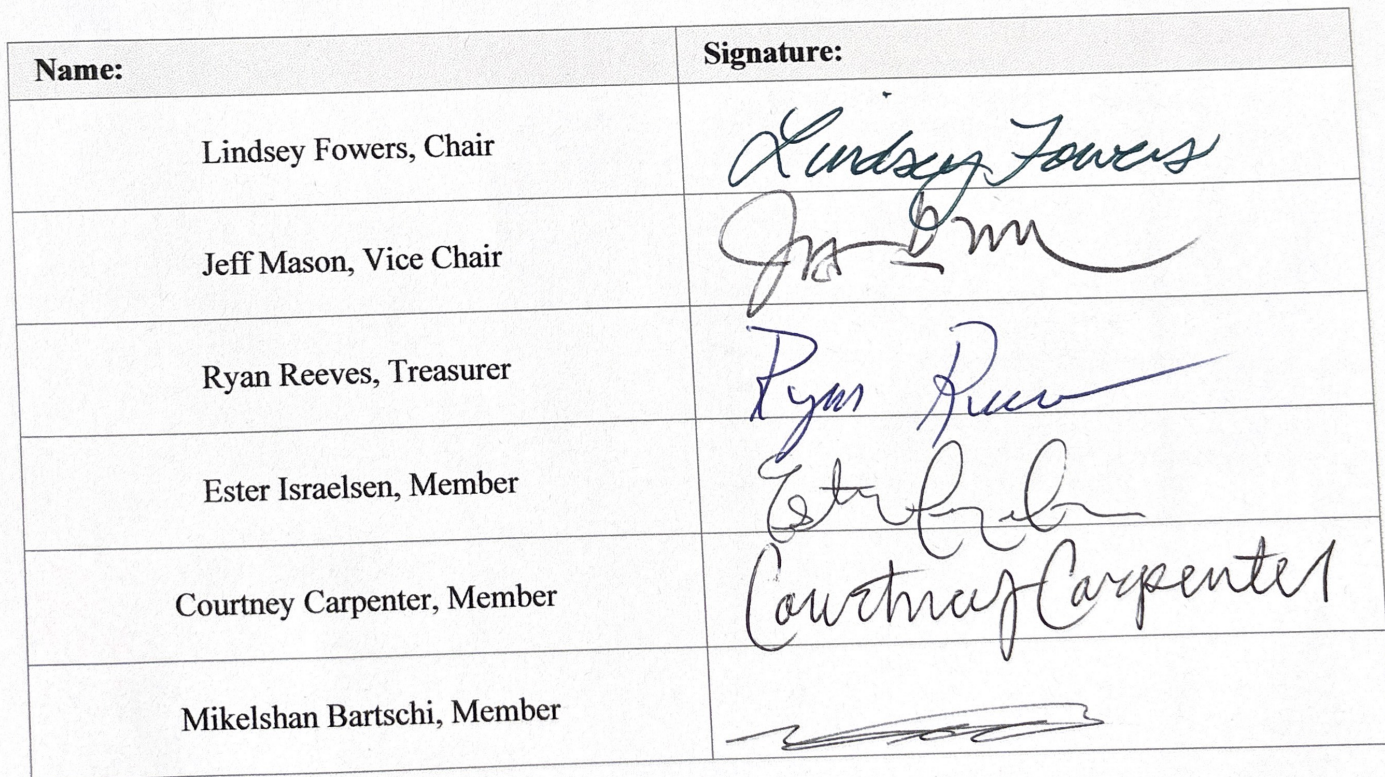 Name: Signature:
Lindsey Fowers, Chair Lindsey Fowers
Jeff Mason, Vice Chair
Ryan Reeves, Treasurer Ryan Reeves
Ester Israelsen, Member Ester
Courtney Carpenter, Member Courtney Carpenter
Mikelshan Bartschi, Member